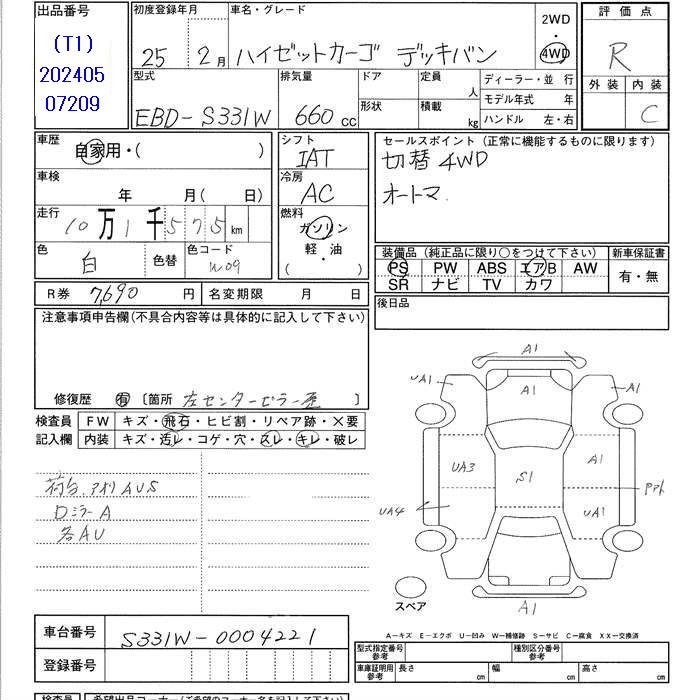 出品番号
(T1)
202405
07209
初度登録年月
25 2月
車名・グレード
ハイゼットカーゴ デッキバン
2WD
・
4WD
評価点
R
外装 内装
C
型式
EBD-S331W
排気量
660 cc
ドア
形状
定員
人
積載
kg
ディーラー・並 行
モデル年式 年
ハンドル 左・右
車歴
自家用・( )
車検
年 月( 日)
走行
10万1千575 km
色
白
色替
色コード
W09
シフト
IAT
冷房
AC
燃料
ガソリン
軽・油
( )
セールスポイント(正常に機能するものに限ります)
切替4WD
オートマ
装備品(純正品に限り○をつけて下さい)
PS PW ABS エアB AW
SR ナビ TV カワ
新車保証書
有・無
後日品
R券 7,690 円
名変期限 月 日
注意事項申告欄(不具合内容等は具体的に記入して下さい)
修復歴 有 〔箇所 左センターピラー歪 〕
検査員
記入欄
FW キズ・飛石・ヒビ割・リペア跡・×要
内装 キズ・汚レ・コゲ・穴・スレ・キレ・破レ
荷台、アオリAUS
DミラーA
各AU
A1
UA1
A1
A1
UA3
S1
A1
UA4
UA1
A1
スペア
A−キズ E−エクボ U−凹み W−補修跡 S−サビ C−腐食 XX−交換済
車台番号
S331W-0004221
登録番号
型式指定番号
参考
種別区分番号
参考
車庫証明用
参考
長さ cm
幅 cm
高さ cm
検査員
希望出品コーナー(ご希望のコーナー名を記入下さい)